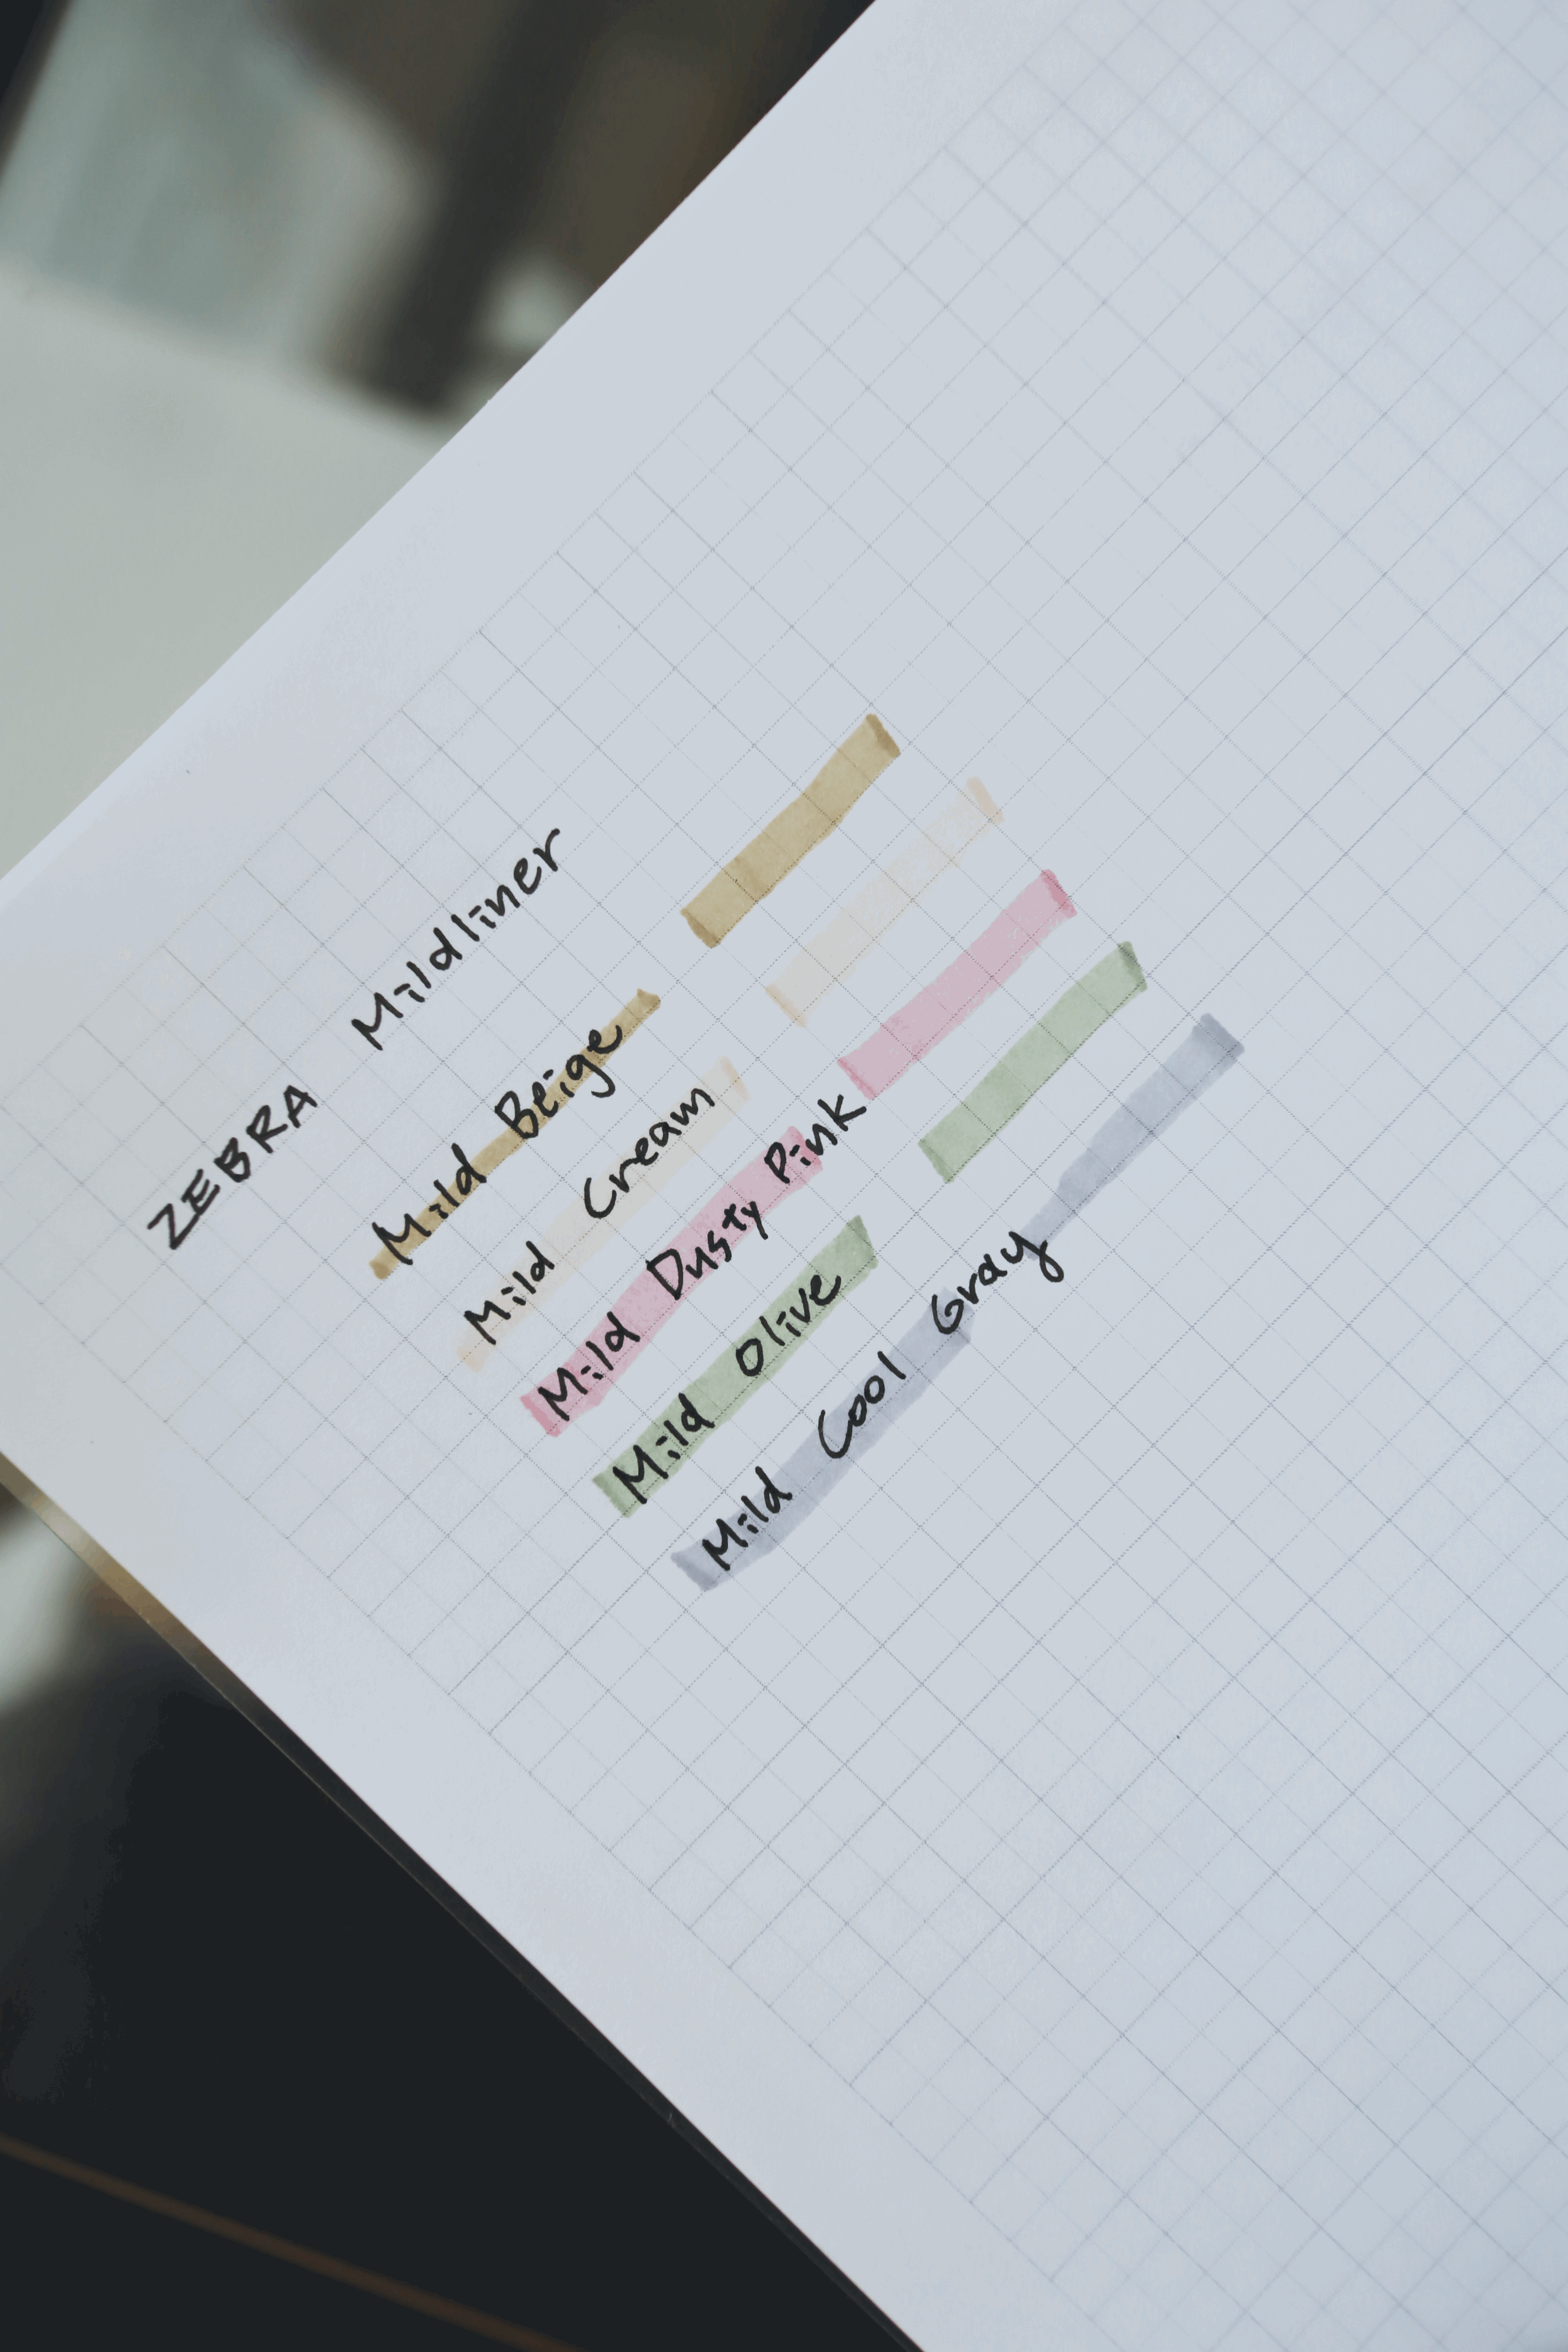 ZEBRA Mildliner
Mild Beige
Mild Cream
Mild Dusty Pink
Mild Olive
Mild Cool Gray